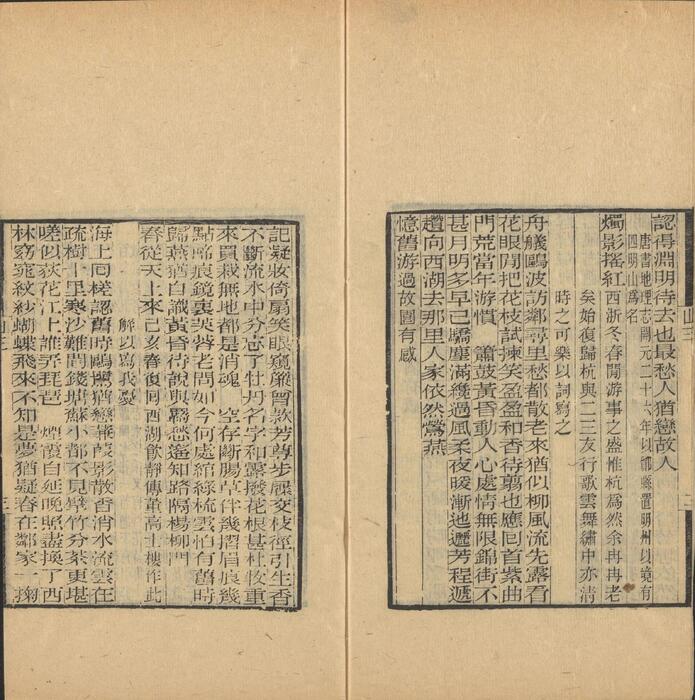 認得淵明待去也最愁人猶戀故人
唐書地理志開元二十六年以鄮縣置明州以境有
四明山爲名
燭影搖紅 西浙冬春閒遊事之盛惟杭爲然余冉冉老
矣始復歸杭與二三友行歌雲舞繡中亦清
時之可樂以詞寫之
舟艤鷗波訪鄰尋里愁都散老來猶似柳風流先露看
花眼閒把花枝試揀笑盈盈和香待翦也應回首紫曲
門荒當年游慣 簫鼓黃昏動人心處情無限錦街不
甚月明多早已驕塵滿纔過風柔夜暖漸迤邐芳程遞
趲向西湖去那里人家依然鶯燕
憶舊游過故園有感
記凝妝倚扇笑眼窺簾曾款芳尊步屧交枝徑引生香
不斷流水中分忘了牡丹名字和露撥花根甚杜牧重
來買栽無地都是消魂 空存斷腸草伴幾摺眉痕幾
點啼痕鏡裏芙蓉老問如今何處綰綠梳雲怕有舊時
歸燕猶自識黃昏待說與羈愁遙知路隔楊柳門
春從天上來 己亥春復回西湖飲靜傳董高士樓作此
解以寫我憂
海上回槎認舊時鷗鷺猶戀蒹葭影散香消水流雲在
疏樹十里寒沙難問錢塘蘇小都不見擘竹分茶更堪
嗟似荻花江上誰弄琵琶 煙霞自延晚照盡換了西
林窈窕紋紗蝴蝶飛來不知是夢猶疑春在鄰家一掬